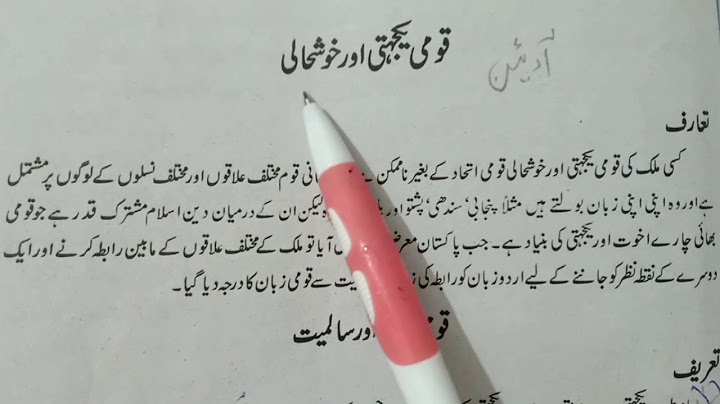 قومی یکجہتی اور خوشحالی
تعارف
کسی ملک کی قومی یکجہتی اور خوشحالی قومی اتحاد کے بغیر ناممکن قوم مختلف علاقوں اور مختلف نسلوں کے لوگوں پر مشتمل
ہے اور وہ اپنی اپنی زبان بولتے ہیں مثلاً پنجابی، سندھی، پشتو اور لیکن ان کے درمیان دین اسلام مشترک قدر ہے جو قومی
بھائی چارے اخوت اور یکجہتی کی بنیاد ہے۔ جب پاکستان آیا تو ملک کے مختلف علاقوں کے مابین رابطہ کرنے اور ایک
دوسرے کے نقطہ نظر کو جاننے کے لیے اردو زبان کو رابطہ کی سے قومی زبان کا درجہ دیا گیا۔
اور سالمیت
تعریف